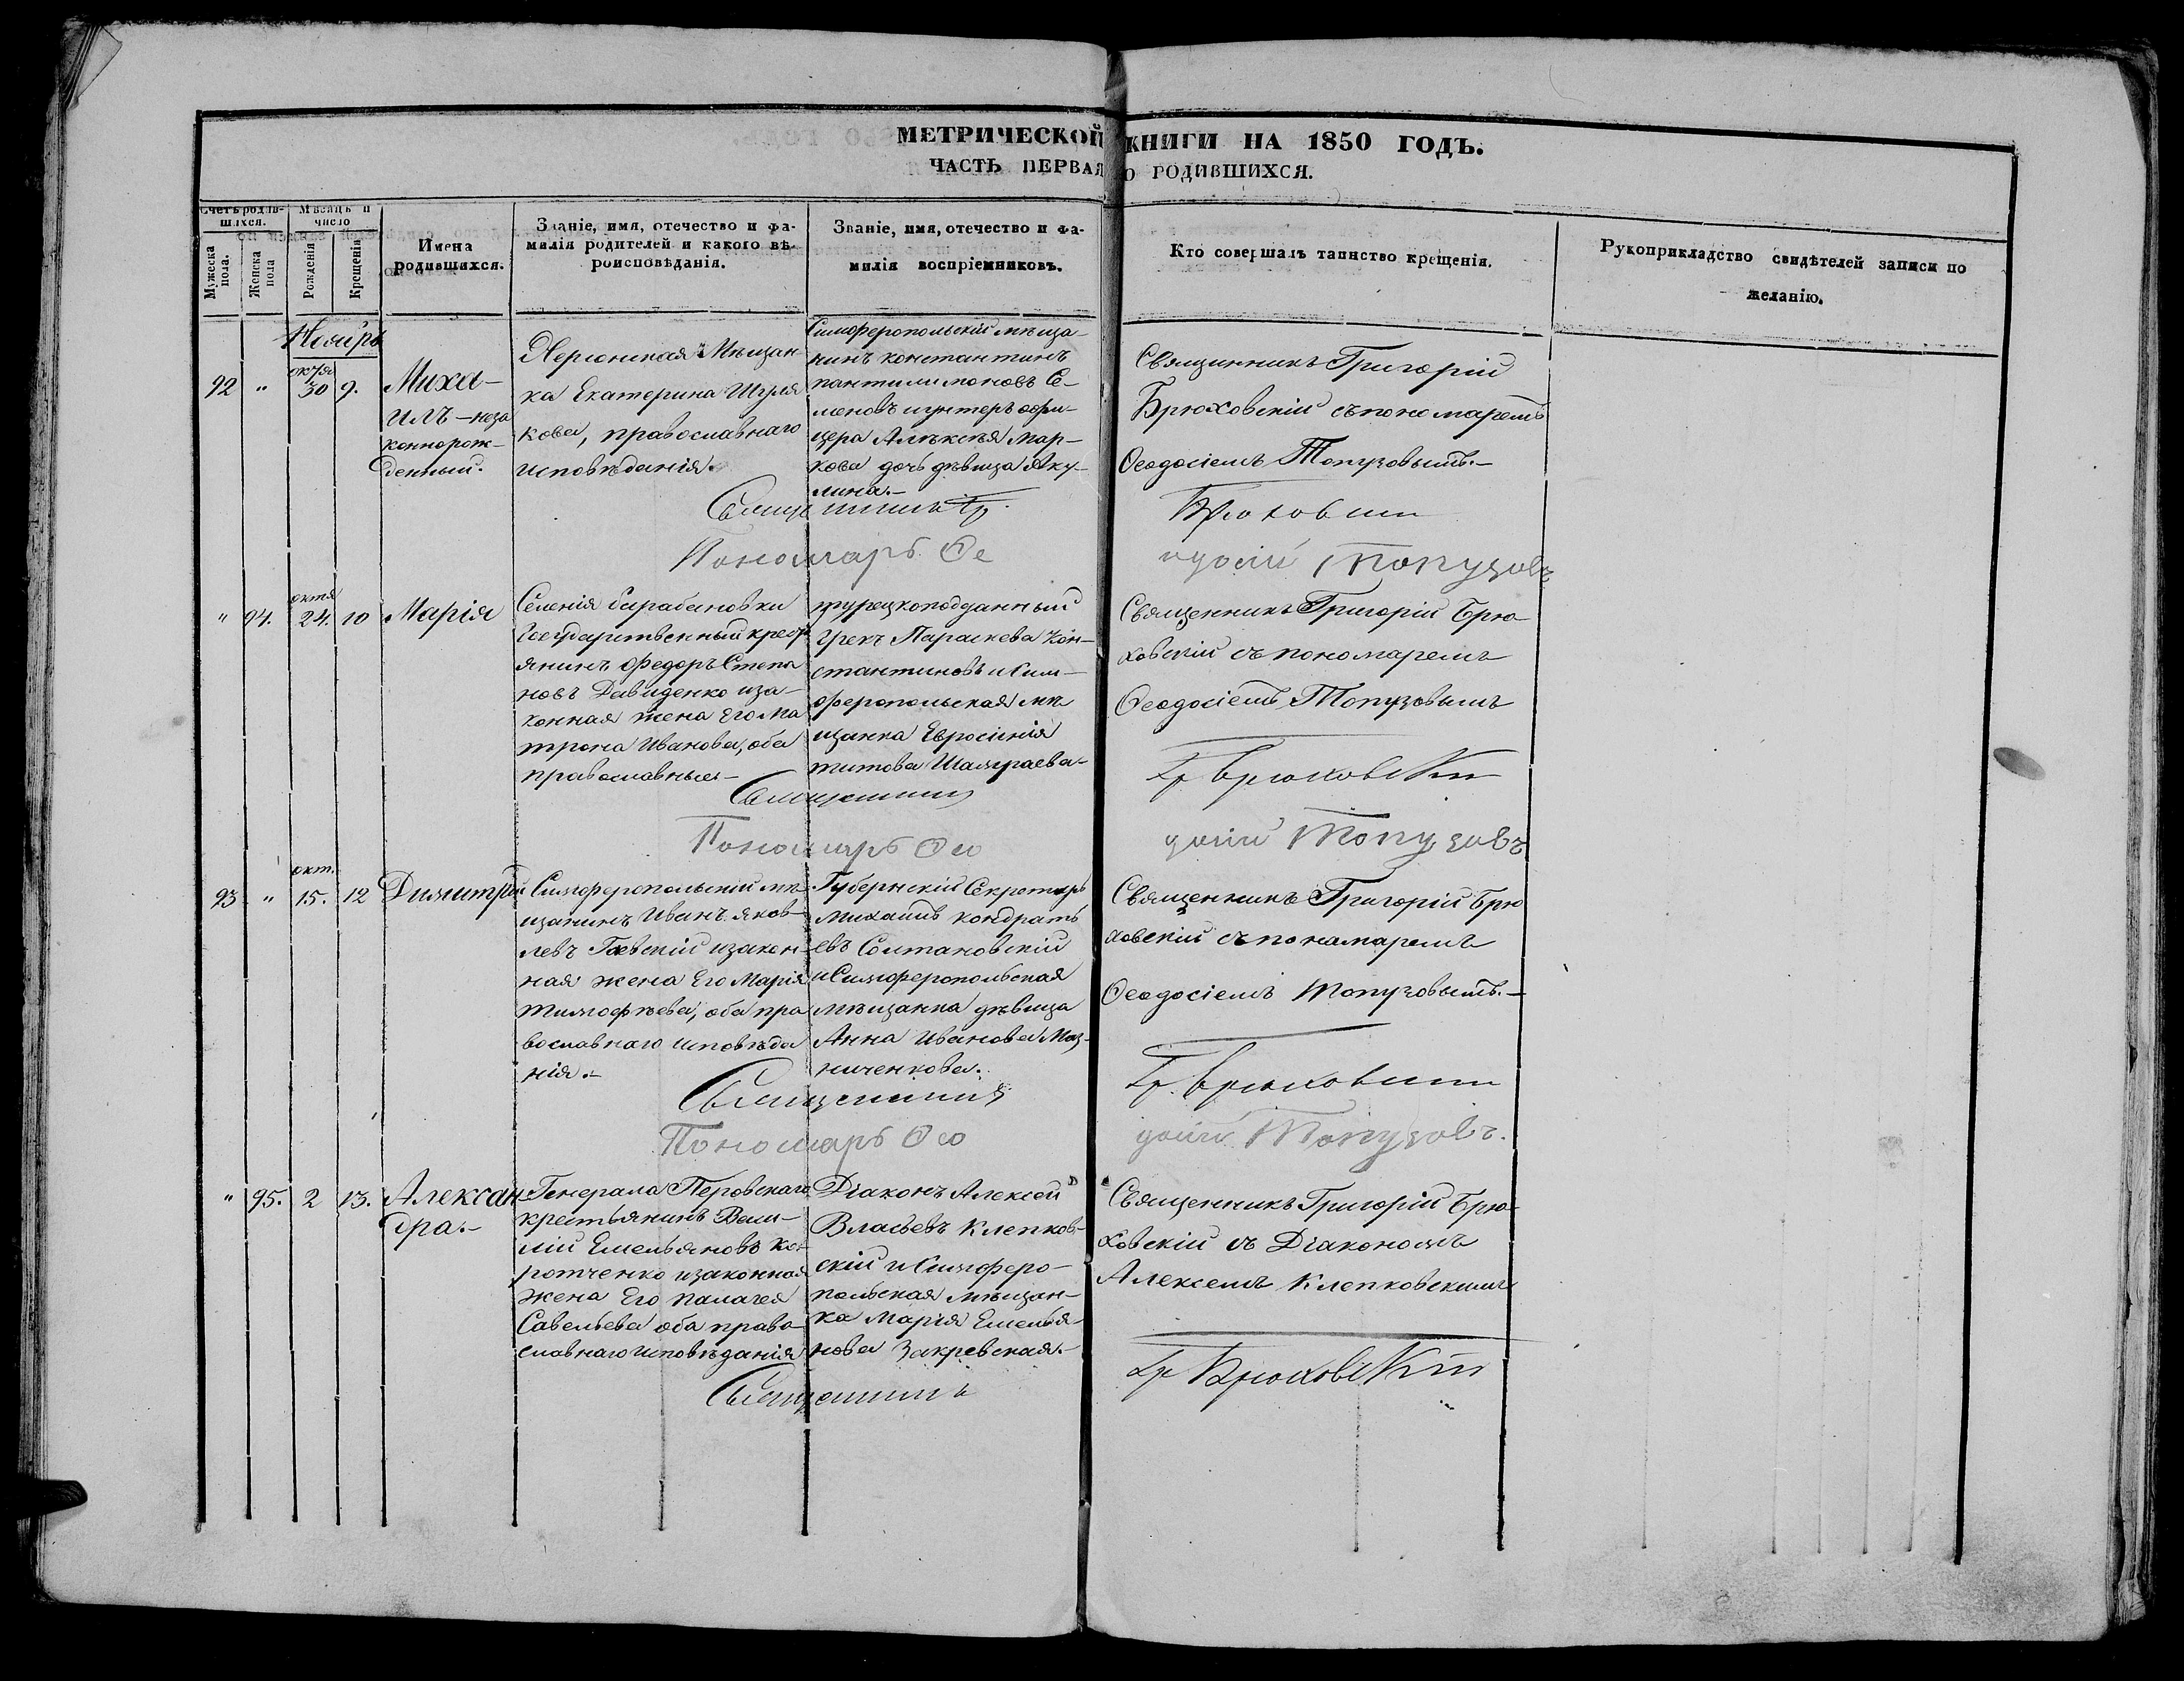 МЕТРИЧЕСКОЙ КНИГИ НА 1850 ГОДЪ.
ЧАСТЬ ПЕРВАЯ О РОДИВШИХСЯ.
Счетъ родив-
шихся.
Мужеска
пола.
Женска
пола
Мѣсяцъ и
число
Рожденія
Крещенія
Имена
родившихся.
Званіе, имя, отечество и фа-
милія родителей и какого вѣ-
роисповѣданія.
Званіе, имя, отечество и фа-
милія воспріемниковъ.
Кто совершалъ таинство крещенія.
Рукоприкладство свидѣтелей записи по
желанію.
Ноябрь
92 " октя 30 9.
Миха-
илъ – неза
коннорож-
денный.
Херсонская Мѣщан
ка Екатерина Шуля
кова, православнаго
исповѣданія.
Симферопольскій мѣща-
нинъ константинъ
пантилимоновъ Се-
меновъ и унтеръ офи-
цера Алѣксѣя Мар-
кова дочь дѣвица Аку-
лина.–
Священникъ Григорій
Брюховскій съ пономаремъ
Ѳеодосіемъ Топузовымъ.–
Священникъ Гр. Брюховскій
Пономарь Ѳеодосій Топузовъ
" 94. октя 24. 10 Марія
Селенія барабановки
Государственный крест
янинъ Федоръ Степа
новъ Давиденко и за-
конная жена Его Ма
трона Иванова, оба
православные–
турецкоподданный
грекъ Параскева Кон-
стантиновъ и Сим-
феропольская мѣ
щанка Евросинія
титова Шамраева–
Священникъ Григорій Брю-
ховскій съ пономаремъ
Ѳеодосіемъ Топузовымъ
Священникъ Гр Брюховскій
Пономарь Ѳеодосій Топузовъ
93 " окт. 15. 12 Димитрій
Симферопольскій мѣ
щанинъ Иванъ яков-
левъ Гаевскій и закон-
ная жена Его Марія
тимофѣева, оба пра
вославнаго исповѣда
нія.–
Губернскій Секретарь
Михаилъ кондрать
евъ Солтановскій
и Симферопольская
мѣщанка дѣвица
Анна Иванова Маз-
ниченкова.
Священникъ Григорій Брю
ховскій съ понамаремъ
Ѳеодосіемъ Топузовымъ.–
Священникъ Гр. Брюховскій
Пономарь Ѳеодосій Топузовъ.
" 95. 2 13. Алексан
дра.–
Генерала Перовскаго
крестьянинъ Васи-
лій Емельяновъ Ко-
ротченко и законная
жена Его палагея
Савельева оба право-
славнаго исповѣданія
Діаконъ Алексей
Власьевъ Клепков-
скій и Симферо-
польская мѣщан-
ка Марія Емелья-
нова Закревская.–
Священникъ Григорій Брю-
ховскій съ Діакономъ
Алексемъ Клепковскимъ
Священникъ Гр Брюховскій